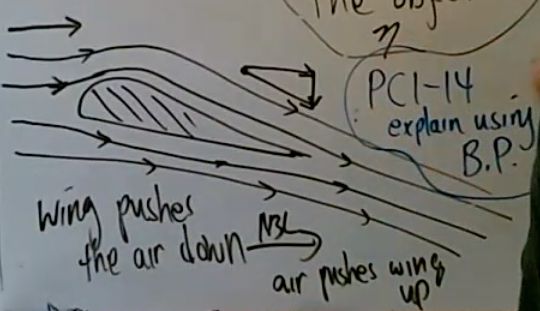 The obje
η
PC1-14
explain using
B.P.
wing pushes
the air down
N3L
air pushes wing
up